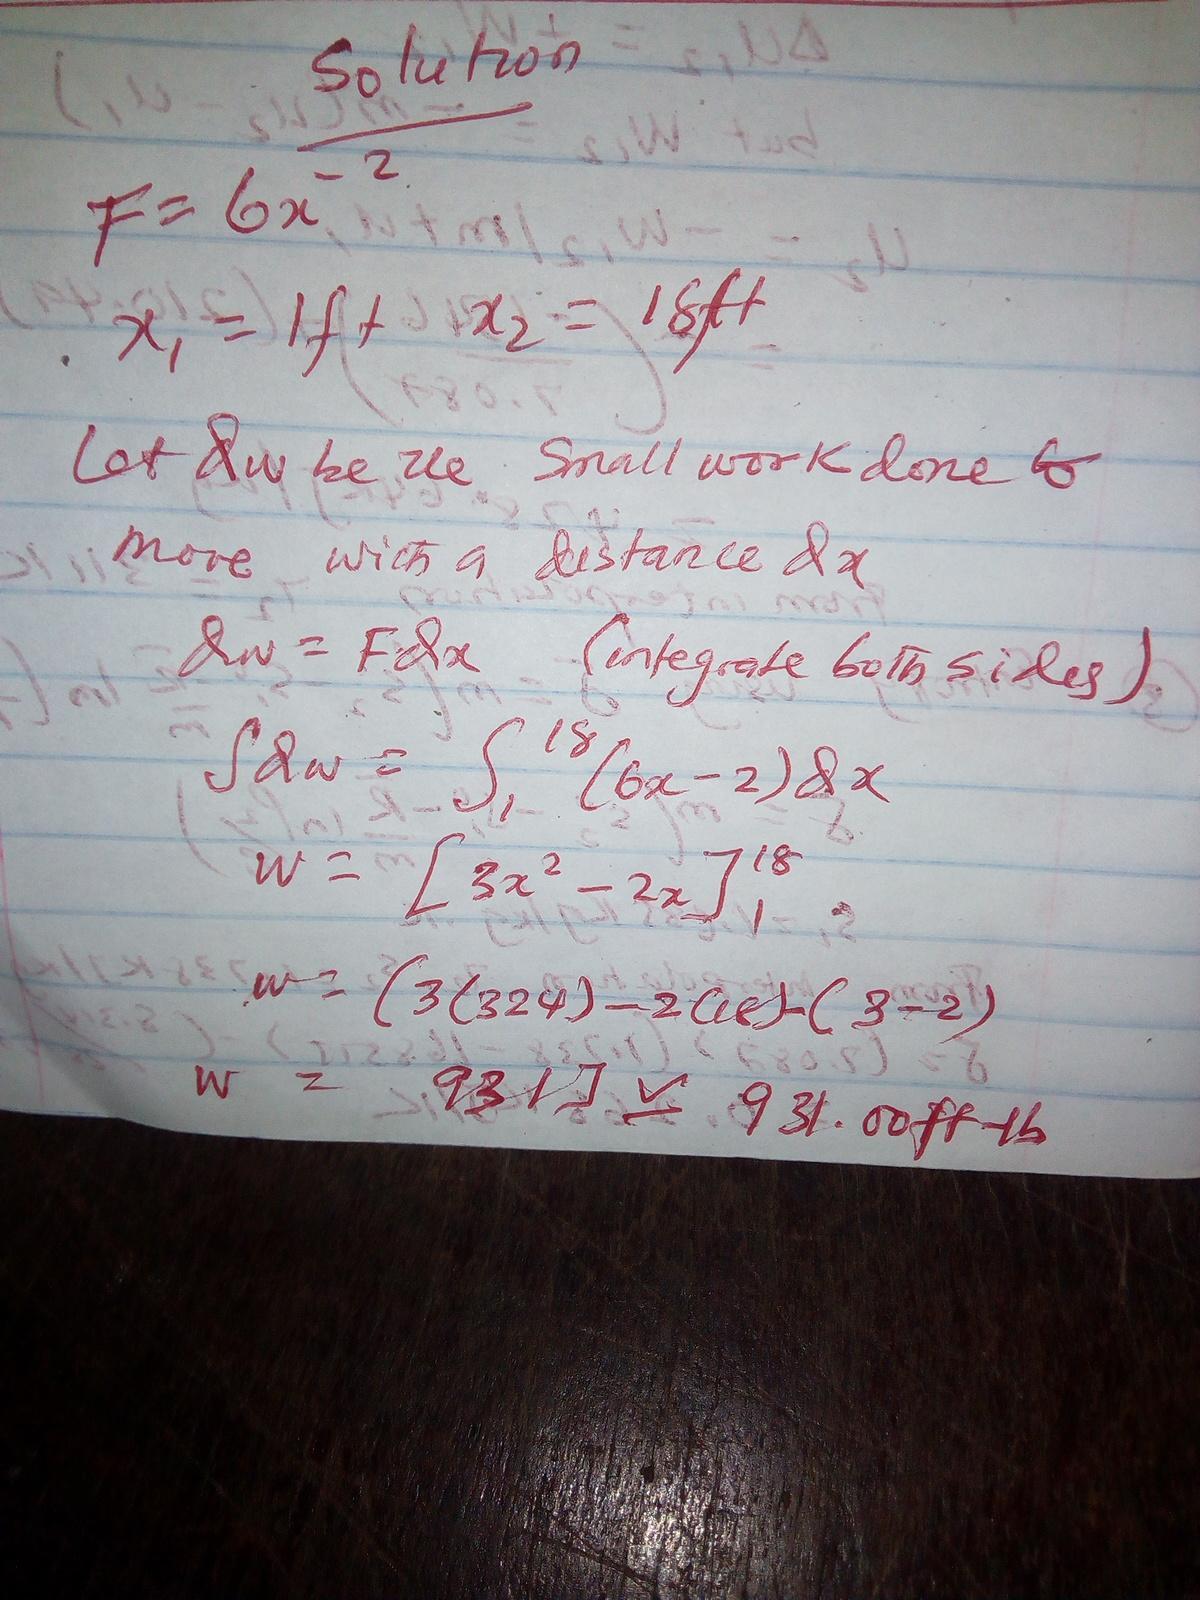 Solution
F = 6x⁻²
x₁ = 1ft x₂ = 18ft
Let dw be the small work done to
move with a distance dx
dw = Fdx (integrate both sides)
∫dw = ∫₁¹⁸ (6x-2)dx
w = [3x² - 2x]₁¹⁸
w = (3(324) - 2(18) - (3-2)
w = 931J 931.00ft-lb